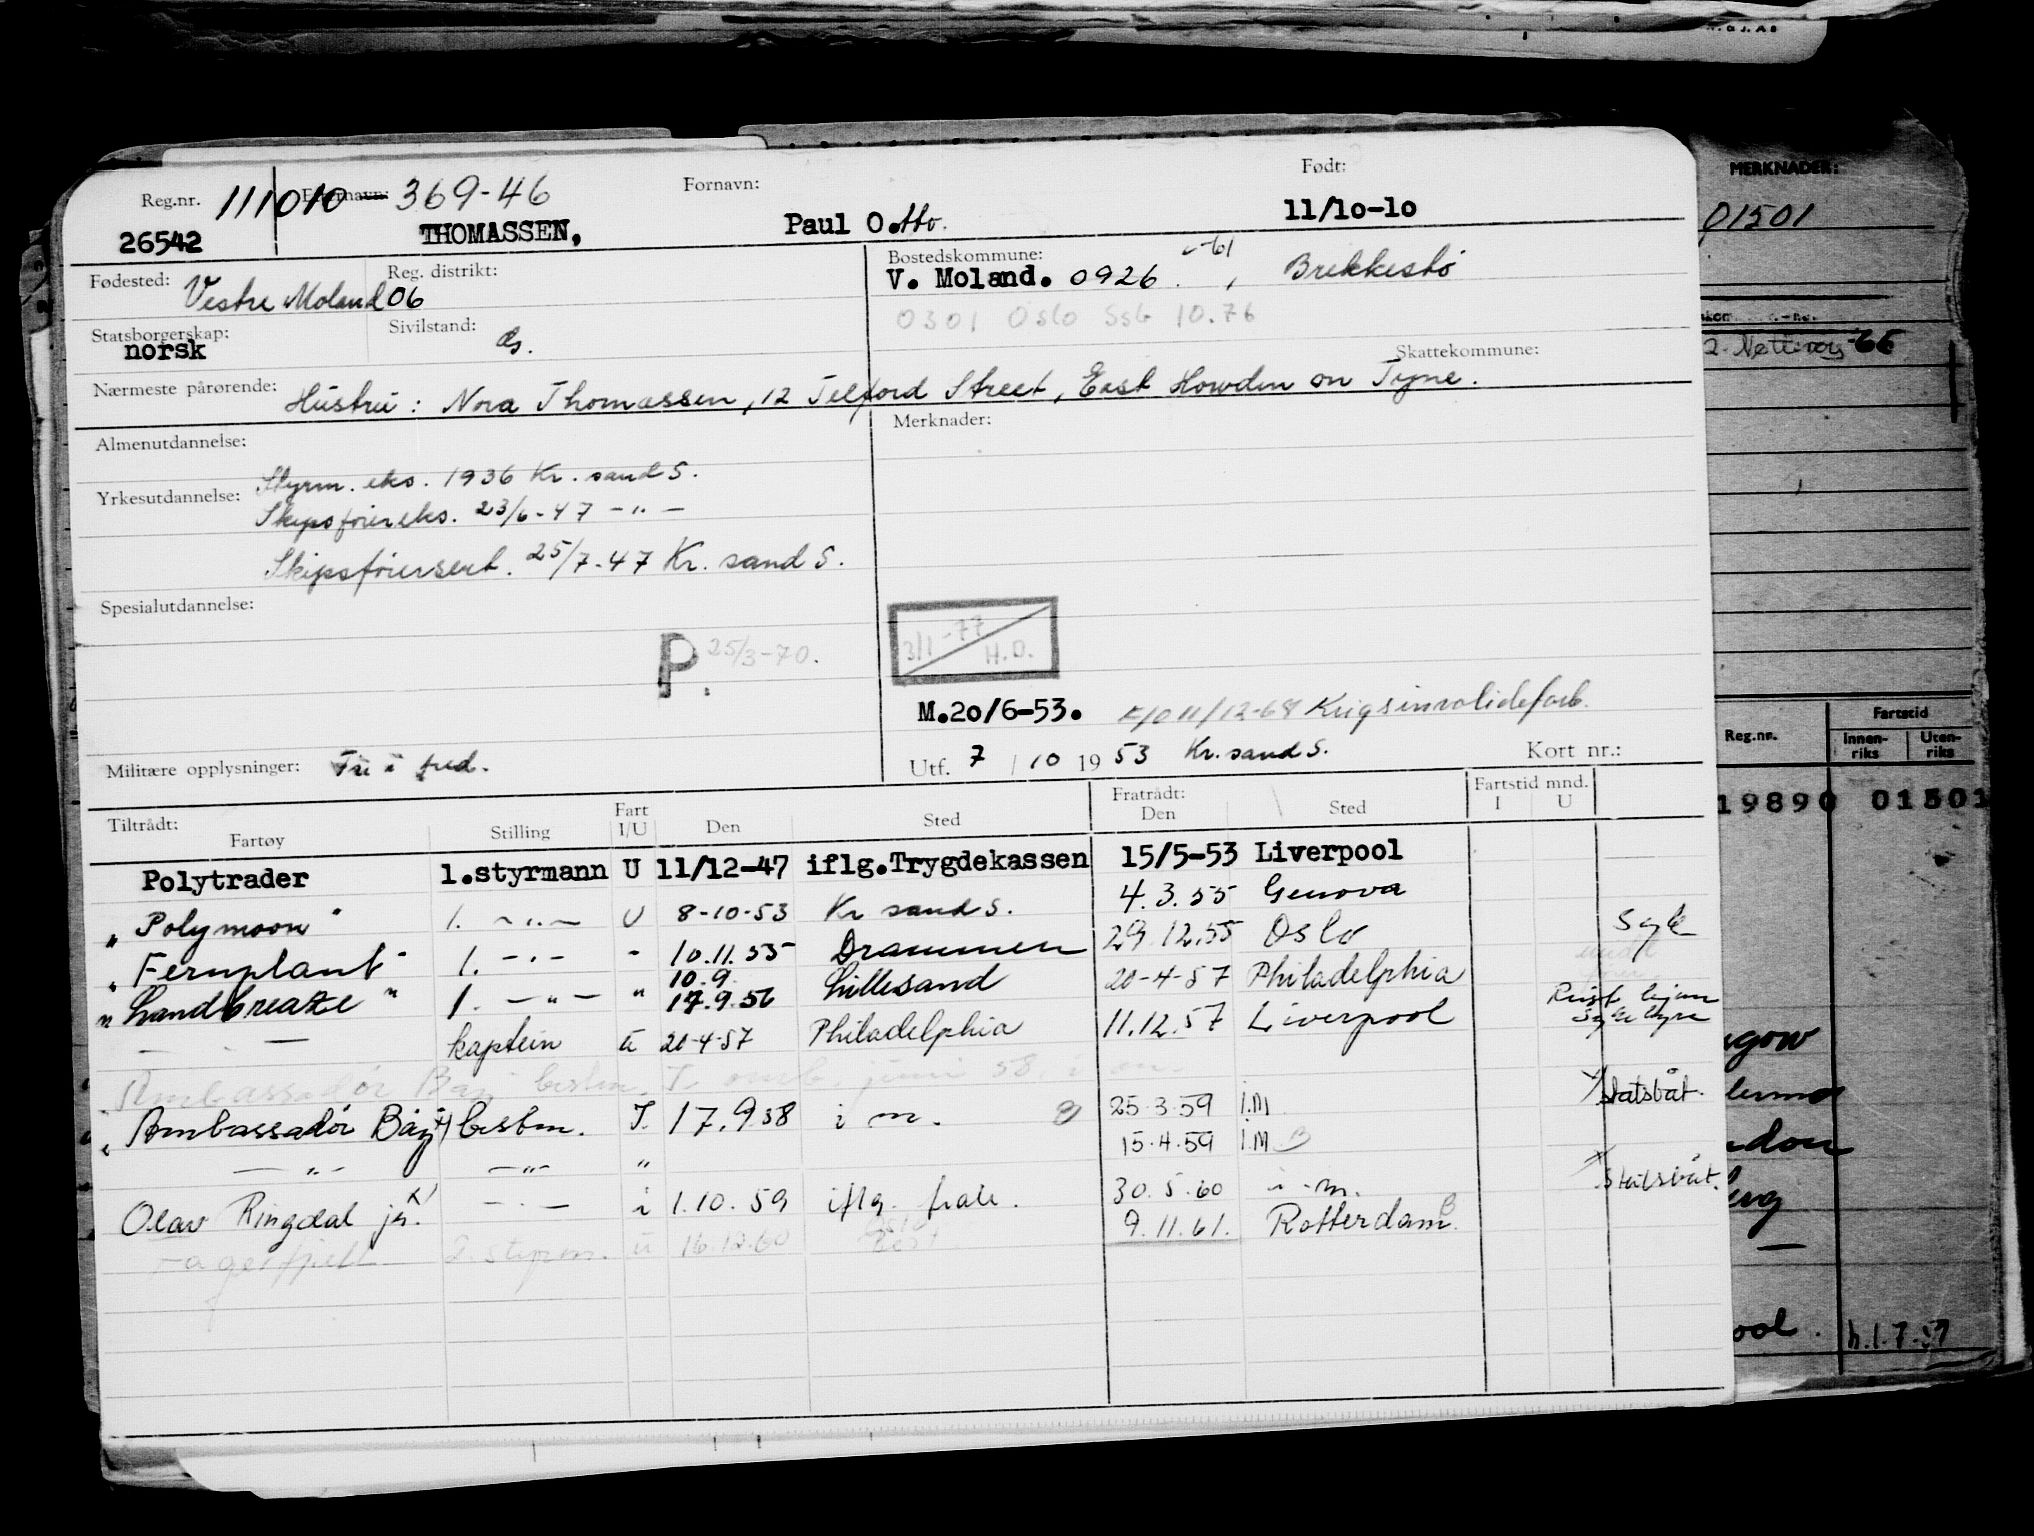 Reg.nr. 111010 Etternavn: 369-46 Fornavn: Født:
26542 THOMASSEN, Paul Otto. 11/10-10
Fødested: Vestre Moland Reg. distrikt: 06 Bostedskommune: V. Moland. 0926 -61, Brekkestø
0301 Oslo Ssb 10.76
Statsborgerskap: norsk Sivilstand: G.
Skattekommune:
Nærmeste pårørende: Hustru: Nora Thomassen, 12 Telford Street, East Howden on Tyne.
Almenutdannelse: Merknader:
Yrkesutdannelse: Styrm. eks. 1936 Kr. sand S.
Skipsførereks. 23/6-47 -"-
Skipsførersert. 25/7-47 Kr. sand S.
Spesialutdannelse:
P. 25/3-70.
3/1-77 H.O.
M.20/6-53. 11/12-68 Krigsinvalideforb.
Militære opplysninger: Fri i fred.
Utf. 7/10 1953 Kr. sand S. Kort nr.:
Tiltrådt: Fratrådt: Fartstid mnd.
Fartøy Stilling Fart I/U Den Sted Den Sted I U
Polytrader 1.styrmann U 11/12-47 iflg.Trygdekassen 15/5-53 Liverpool
"Polymoon" 1. -"- U 8-10-53 Kr sand S. 4.3.55 Genova
"Fernplant" 1. -"- - 10.11.55 Drammen 29.12.55 Oslo Syk
10.9.
"Landbreaze" 1. -"- " 17.9.56 Lillesand 20-4-57 Philadelphia
- " - kaptein u 20-4-57 Philadelphia 11.12.57 Liverpool
Ambassadør Bay bestm. I juni 58.
"Ambassadør Bay x) bestm. I. 17.9.58 i m. 25.3.59 I.M x) Statsbåt.
-"- -"- " 15.4.59 I.M B
Olav Ringdal jr. x) -"- i 1.10.59 iflg. 30.5.60 i m. x) Statsbåt.
2. styrm. u 16.12.60 9.11.61. Rotterdam. B
N.O.J. AS
MERKNADER:
01501
-66
Reg.nr. Fartstid
Innen-riks Uten-riks
19890 01501
h.1.7.57